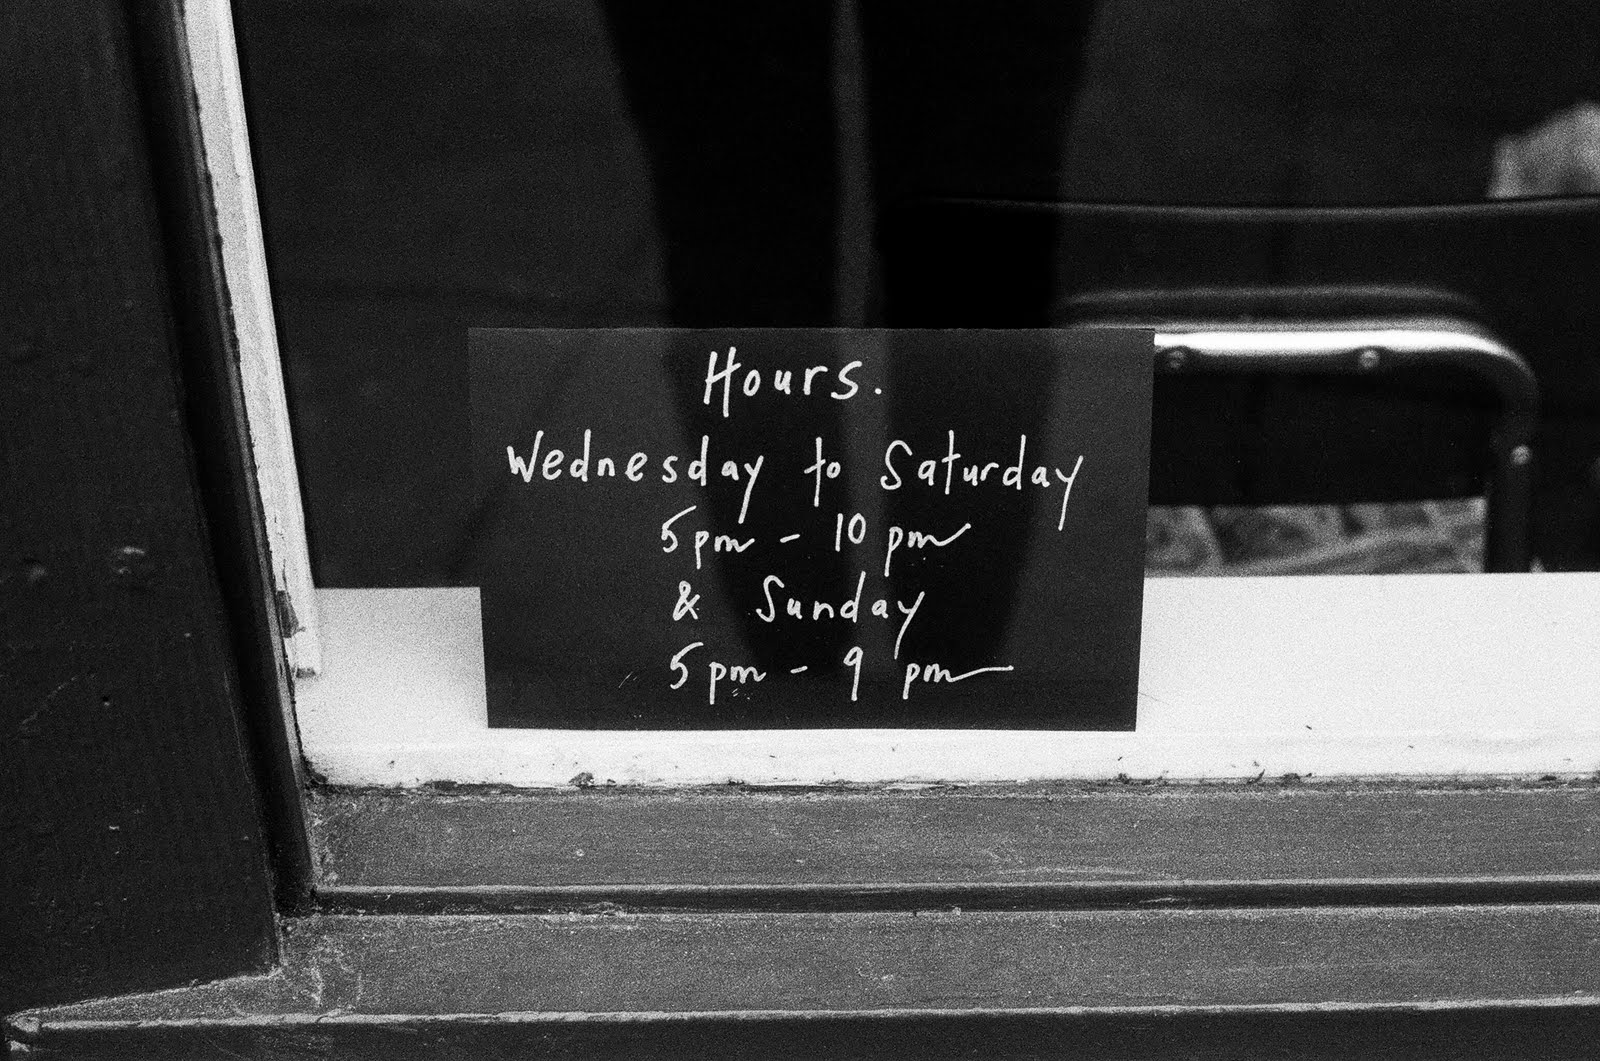 Hours.
Wednesday to Saturday
5pm - 10 pm
& Sunday
5pm - 9 pm